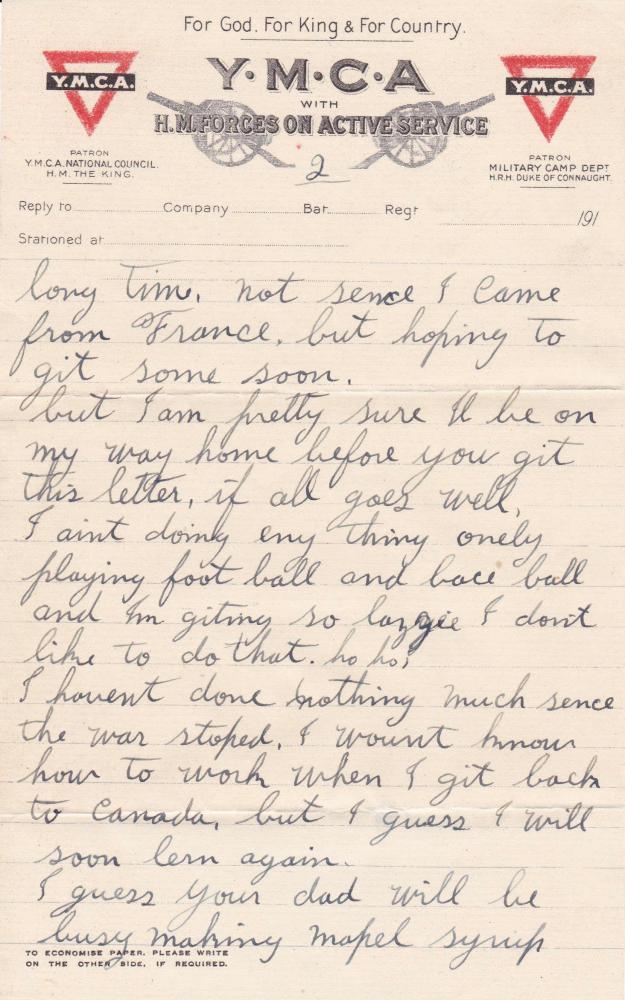 For God. For King & For Country.
Y.M.C.A.
Y·M·C·A
Y.M.C.A.
WITH
H.M. FORCES ON ACTIVE SERVICE
PATRON
Y.M.C.A. NATIONAL COUNCIL.
H.M. THE KING.
2
PATRON
MILITARY CAMP DEPT
H.R.H. DUKE OF CONNAUGHT.
Reply to Company Bat. Regt 191
Stationed at
long tim, not sence I came
from France, but hoping to
git some soon.
but I am pretty sure Il be on
my way home before you git
this letter, if all goes well,
I aint doing eny thing onely
playing foot ball and bace ball
and Im giting so lazzie I don't
like to do that. ho ho!
I havent done nothing much sence
the war stoped. I wount know
how to work when I git back
to Canada, but I guess I will
soon lern again.
I guess your dad will be
busy making mapel syrup
TO ECONOMISE PAPER, PLEASE WRITE
ON THE OTHER SIDE, IF REQUIRED.